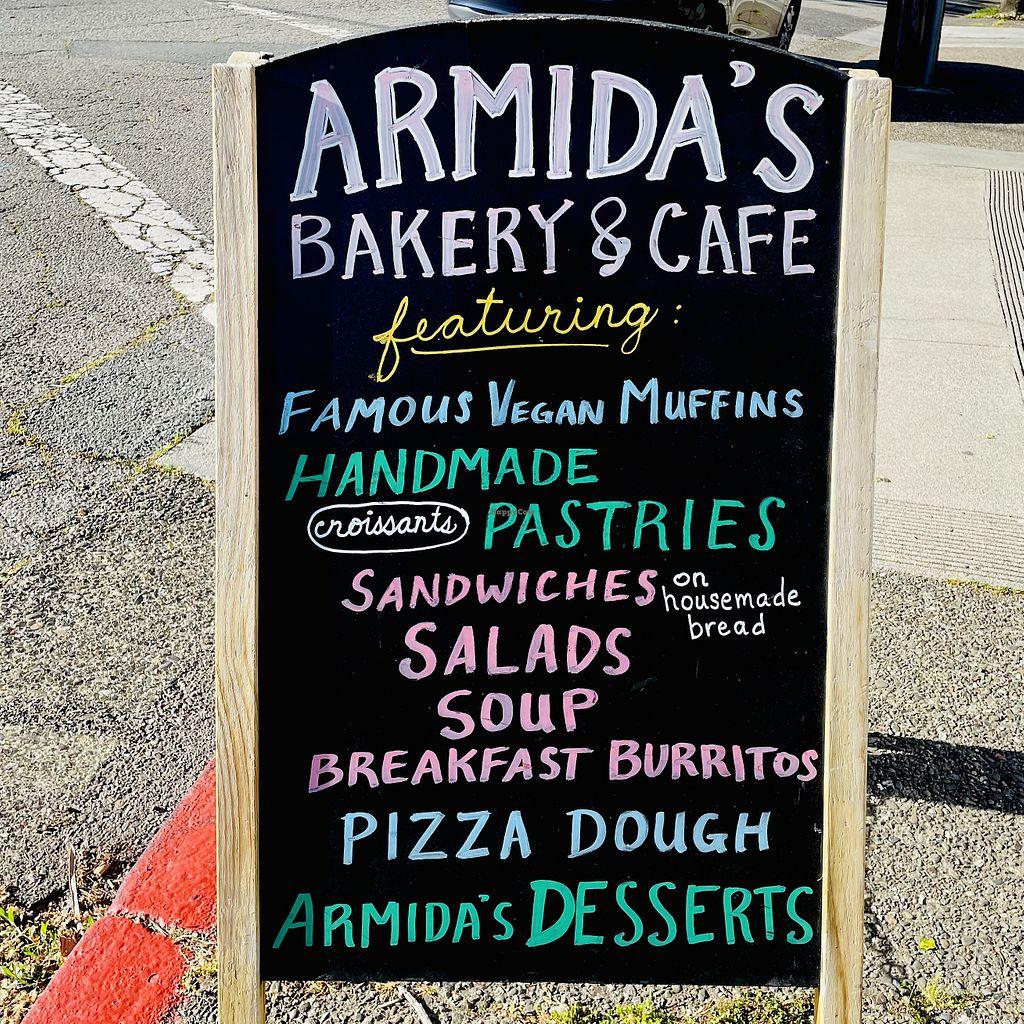 ARMIDA'S
BAKERY & CAFE
featuring:
FAMOUS VEGAN MUFFINS
HANDMADE
croissants PASTRIES
SANDWICHES on housemade bread
SALADS
SOUP
BREAKFAST BURRITOS
PIZZA DOUGH
ARMIDA'S DESSERTS